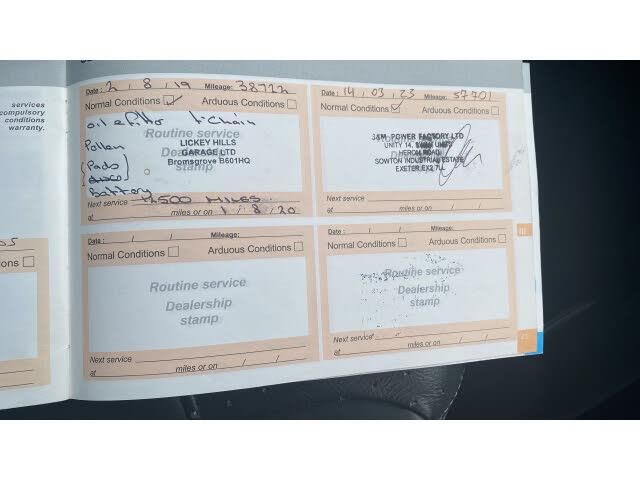 services
compulsory
conditions
warranty.
05
ons
Date: 2 / 8 / 19 Mileage: 38722
Normal Conditions Arduous Conditions
oil & filter + chain
Pollen
Pads
discs
battery
Routine service
Dealership
stamp
LICKEY HILLS
GARAGE LTD
Bromsgrove B601HQ
Next service 12500 MILES
at miles or on 1 / 8 / 20
Date: 14 / 03 / 23 Mileage: 57701
Normal Conditions Arduous Conditions
POWER FACTORY LTD
UNITY 14,
HERON ROAD
SOWTON INDUSTRIAL ESTATE
EXETER EX2 7LL
Next service
at miles or on / /
Date: / / Mileage:
Normal Conditions Arduous Conditions
Routine service
Dealership
stamp
Next service
at miles or on / /
Date: / / Mileage:
Normal Conditions Arduous Conditions
Routine service
Dealership
stamp
Next service
at miles or on / /